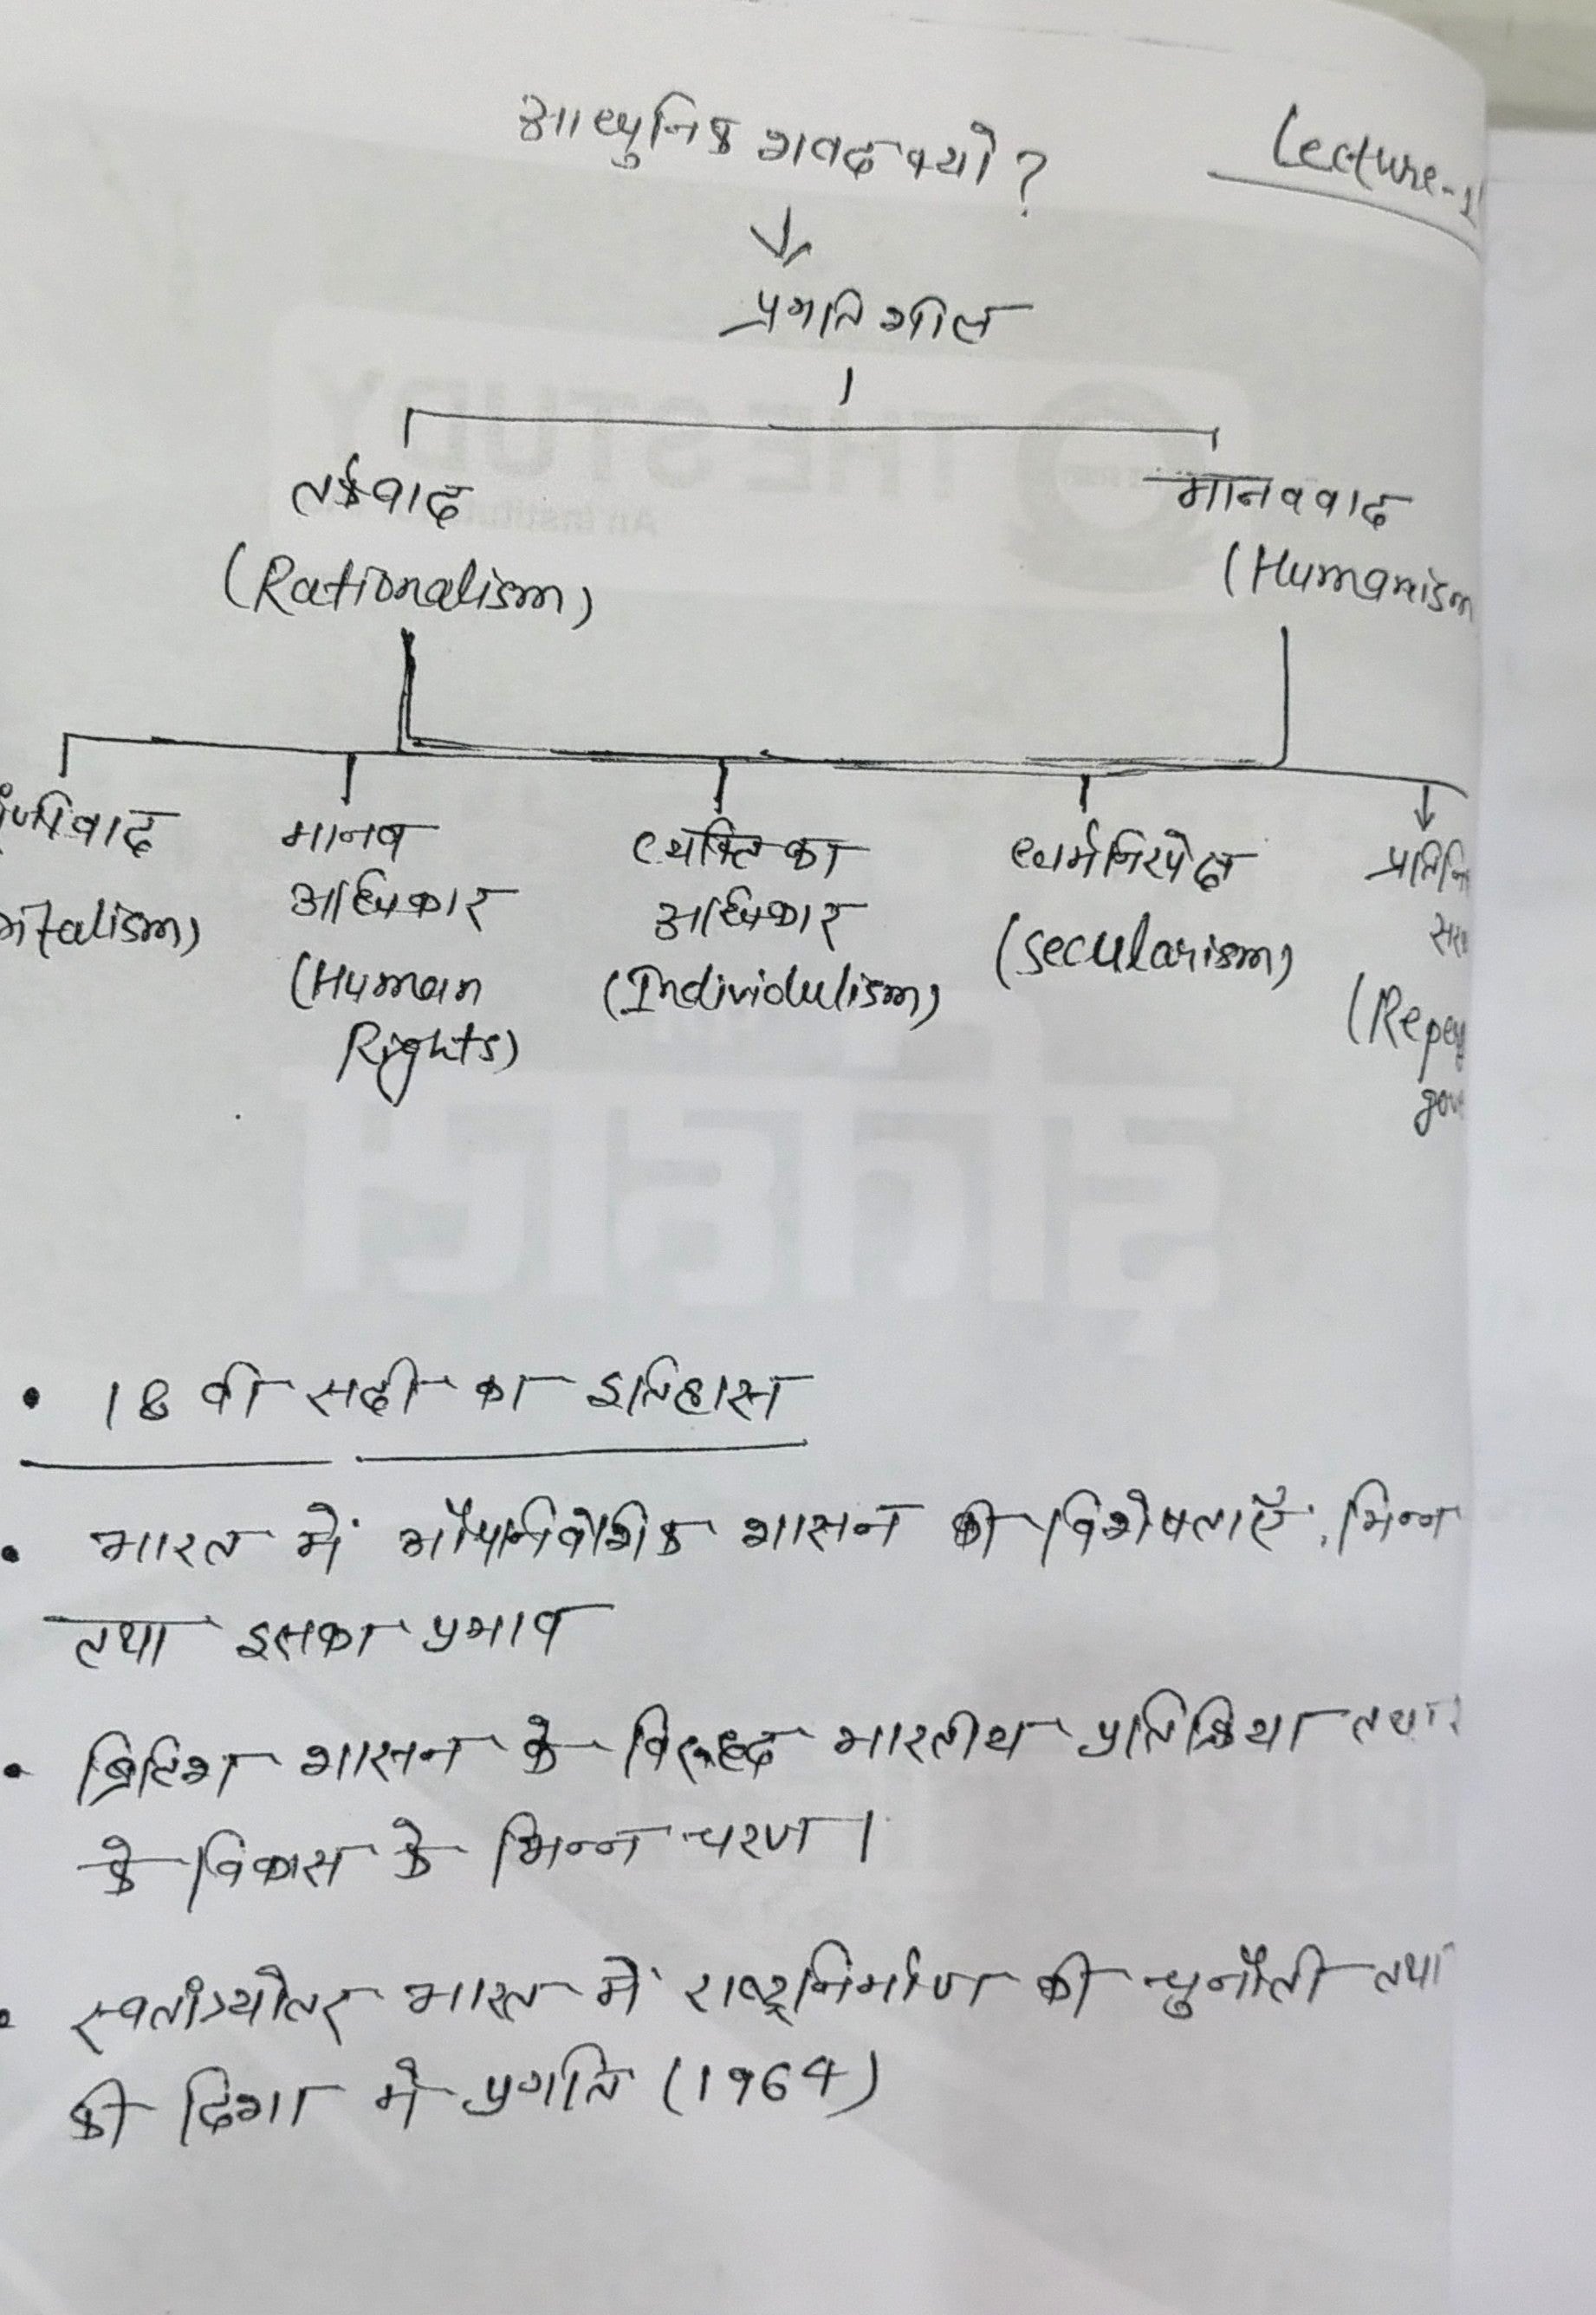 Lecture-1
आधुनिक शब्द क्यों ?
प्रगतिशील
तर्कवाद
(Rationalism)
मानववाद
(Humanism
पूंजीवाद
italism)
मानव
अधिकार
(Human
Rights)
व्यक्ति का
अधिकार
(Individulism)
धर्मनिरपेक्ष
(secularism)
प्रतिनि
सर
(Repe
gov
• 18 वी सदी का इतिहास
• भारत में औपनिवेशिक शासन की विशेषताएँ, भिन्न
तथा इसका प्रभाव
• ब्रिटिश शासन के विरुद्ध भारतीय प्रतिक्रिया तथा
के विकास के भिन्न चरण ।
• स्वतांत्र्योतर भारत में राष्ट्रनिर्माण की चुनौती तथा
की दिशा मे प्रगति (1964)